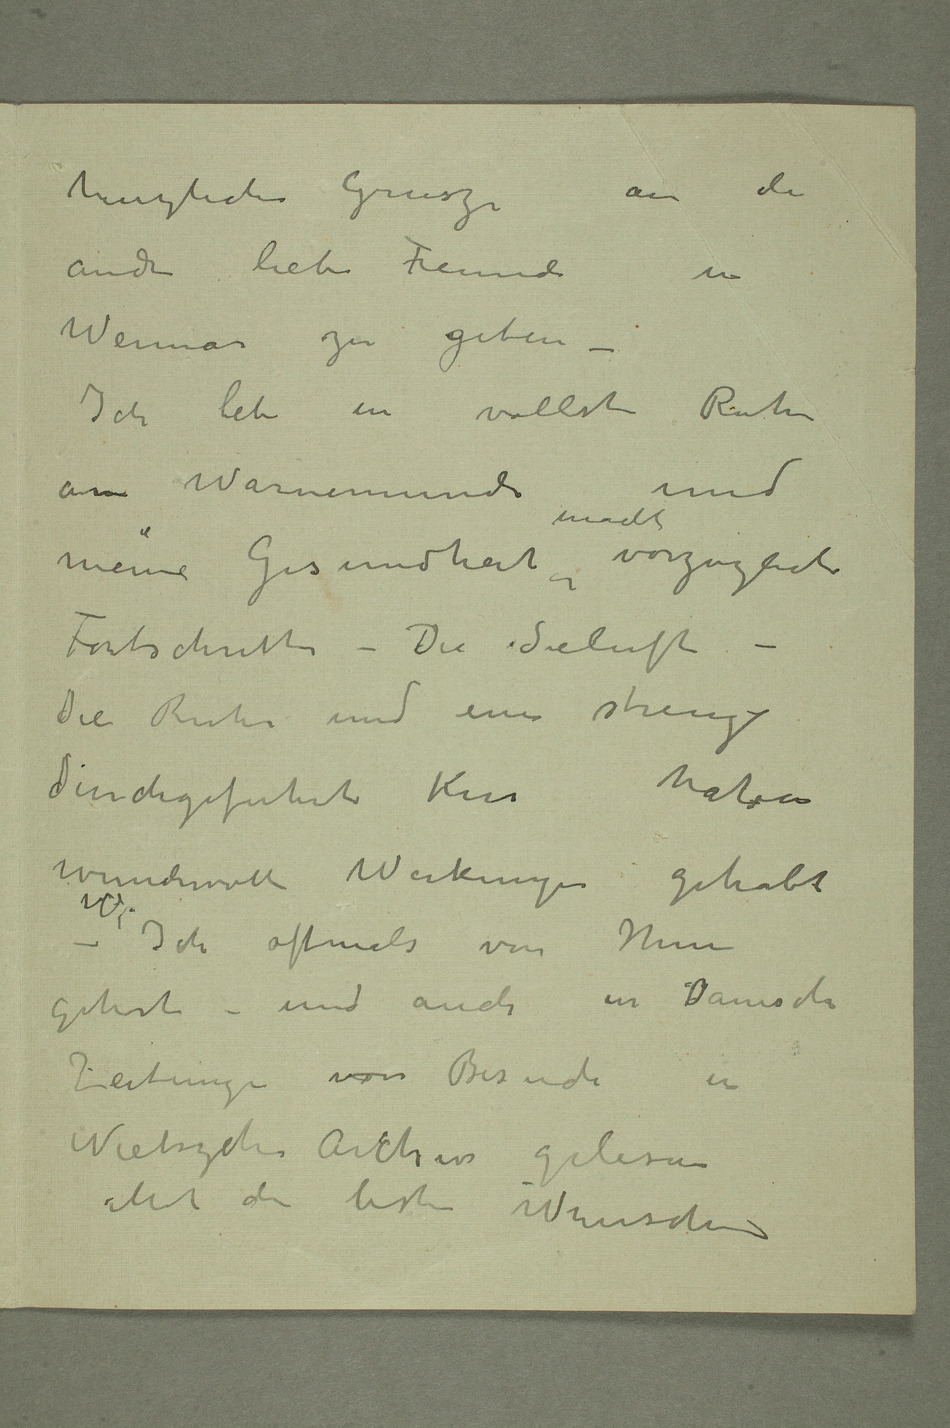 herzliche Grusze an die
andre liebe Freunde in
Weimar zu geben –
Ich lebe in vollste Ruhe
an Warnemunde und
meine Gesundheit macht vorzugliche
Fortschritte – Die Seeluft –
Die Ruhe und eine strenge
durchgefuhrte Kur haben
wundervolle Wirkungen gehabt
– Ich oftmals von Ihnen
gehört – und auch in Danische
Zeitunge von Besuche in
Nietszche Archiv gelesen
Mit den besten Wunschen